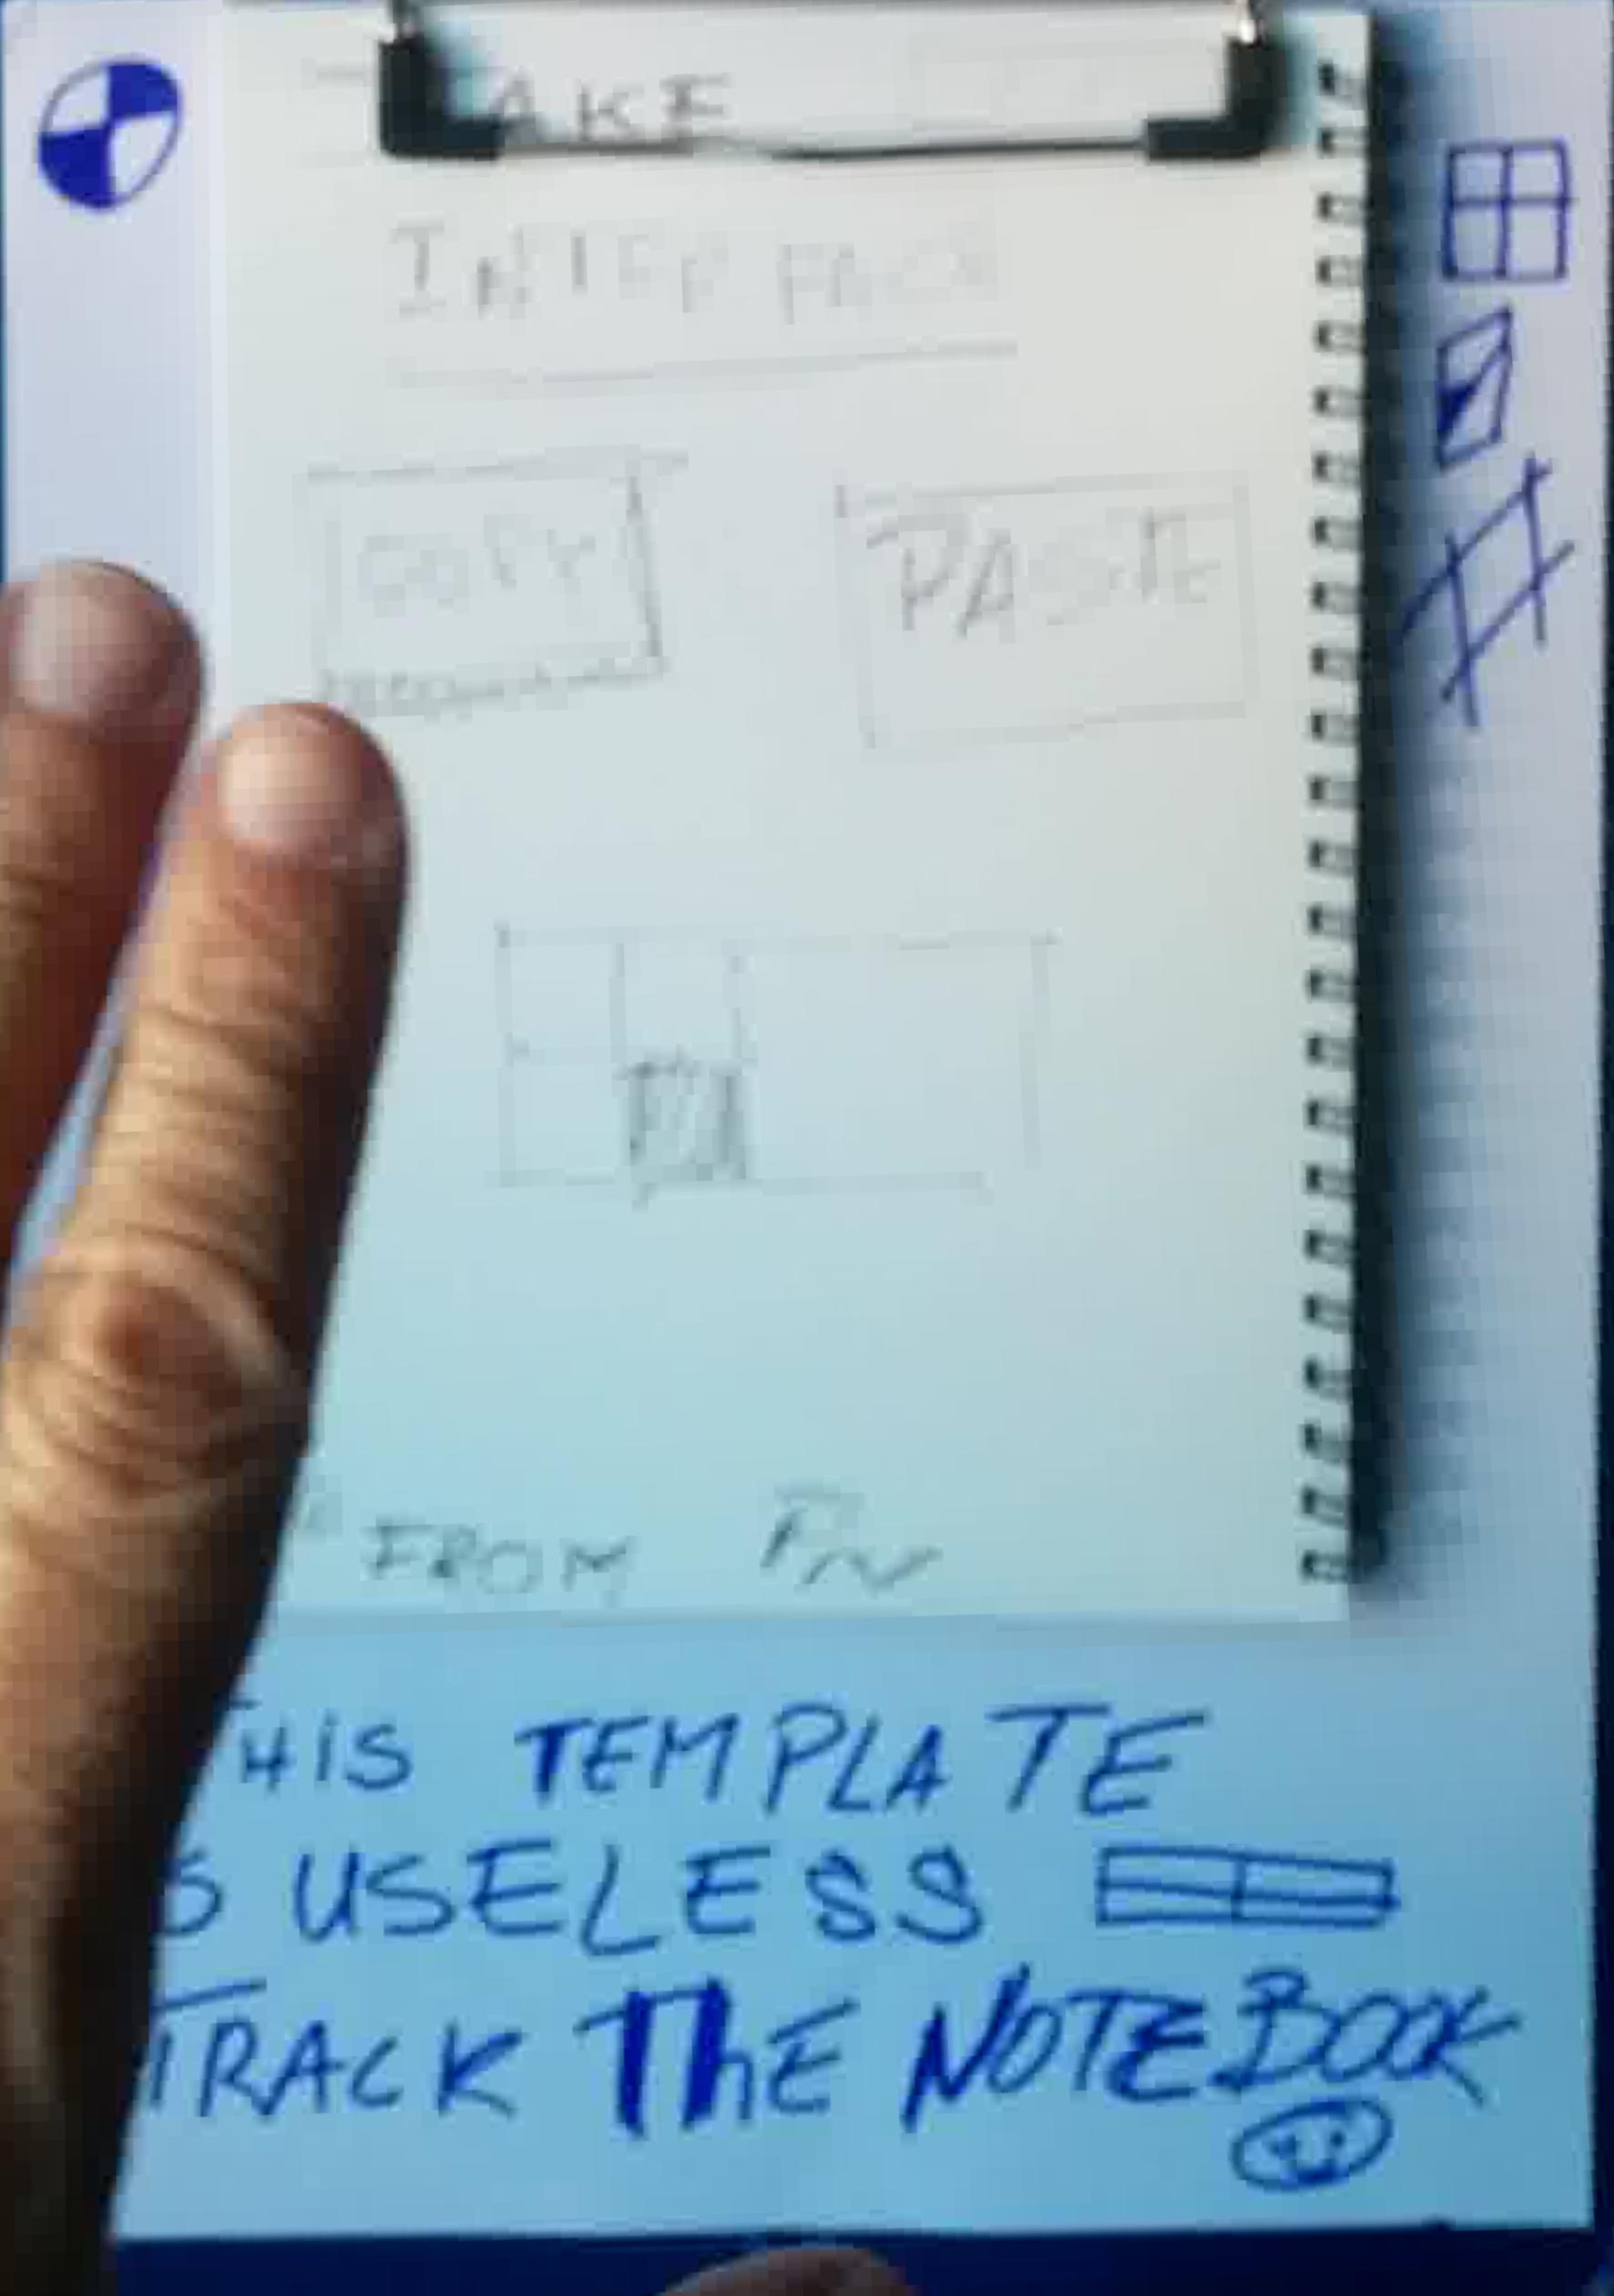 AKE
INTERFACE
COPY PASTE
PA
FROM
HIS TEMPLATE
S USELESS
TRACK ThE NOTEBOOK